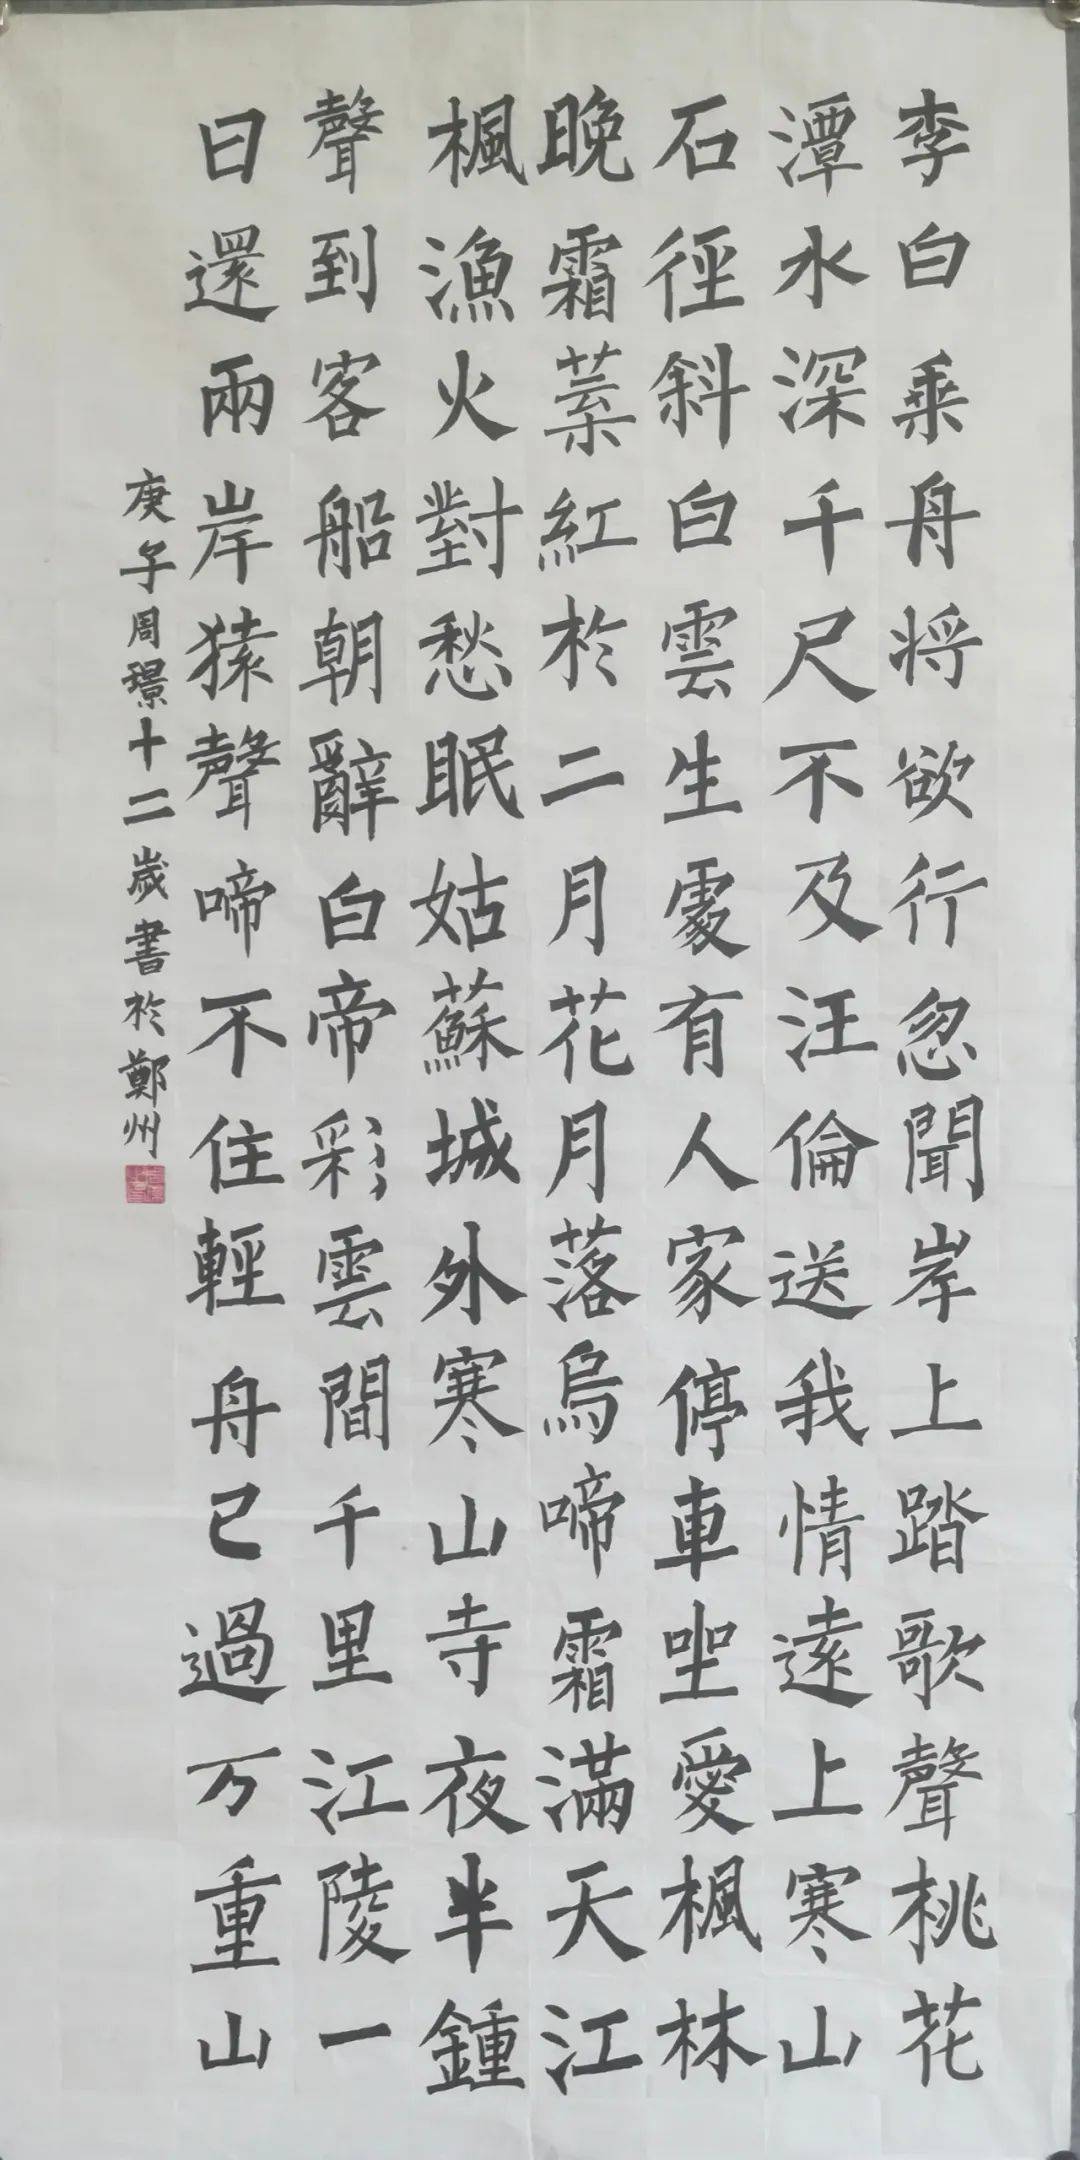 李白乘舟将欲行忽聞岸上踏歌聲桃花
潭水深千尺不及汪倫送我情遠上寒山
石徑斜白雲生處有人家停車坐愛楓林
晚霜葉紅於二月花月落烏啼霜滿天江
楓漁火對愁眠姑蘇城外寒山寺夜半鍾
聲到客船朝辭白帝彩雲間千里江陵一
日還兩岸猿聲啼不住輕舟已過万重山
庚子周璟十二歲書於鄭州